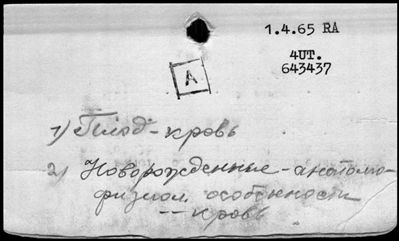 1.4.65 RA
4UT.
643437
A
1) Плод - кровь
2) Новорожденные - анатомо-
физиол. особенности
-- кровь